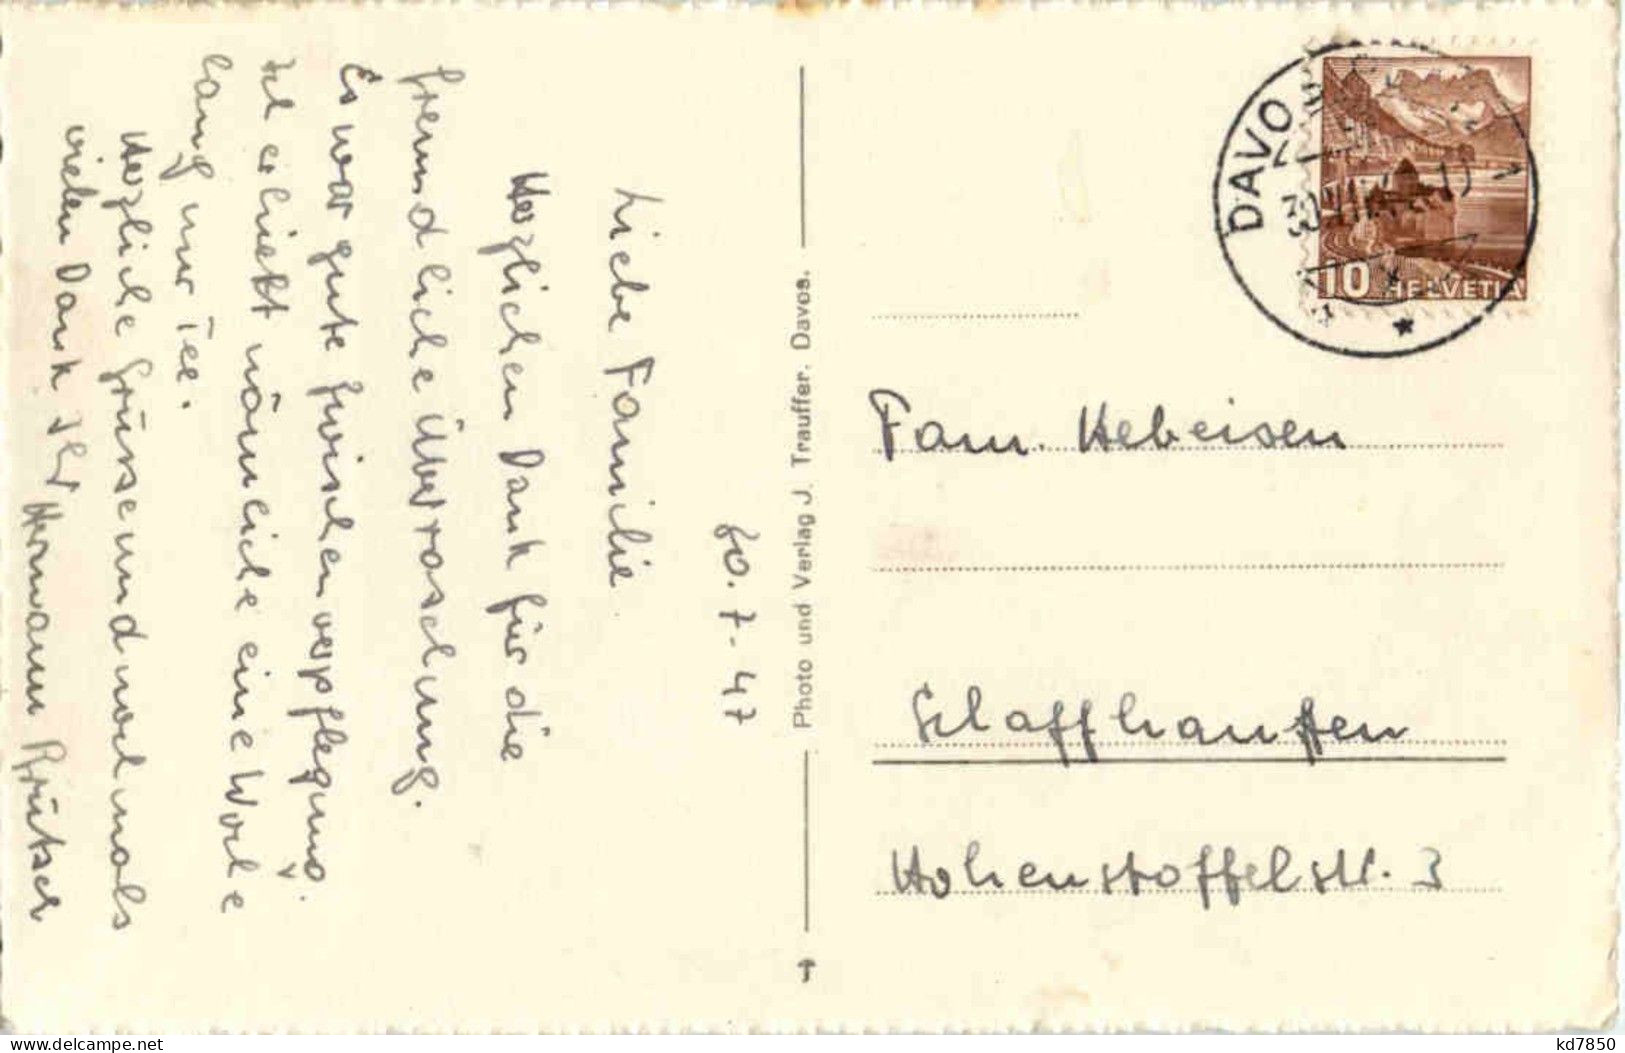 30.7.47
Liebe Familie
Herzlichen Dank für die
freundliche Überraschung.
Es war gute Zwischenverpflegung.
Ich erhielt nämlich eine Woche
lang nur Tee.
Herzliche Grüsse und nochmals
vielen Dank Ihr Hermann Brütsch
Photo und Verlag J. Trauffer. Davos.
DAVO
30.VII.47
10 HELVETIA
Fam. Hebeisen
Schaffhausen
Hohenstoffelstr. 3
delcampe.net
kd7850